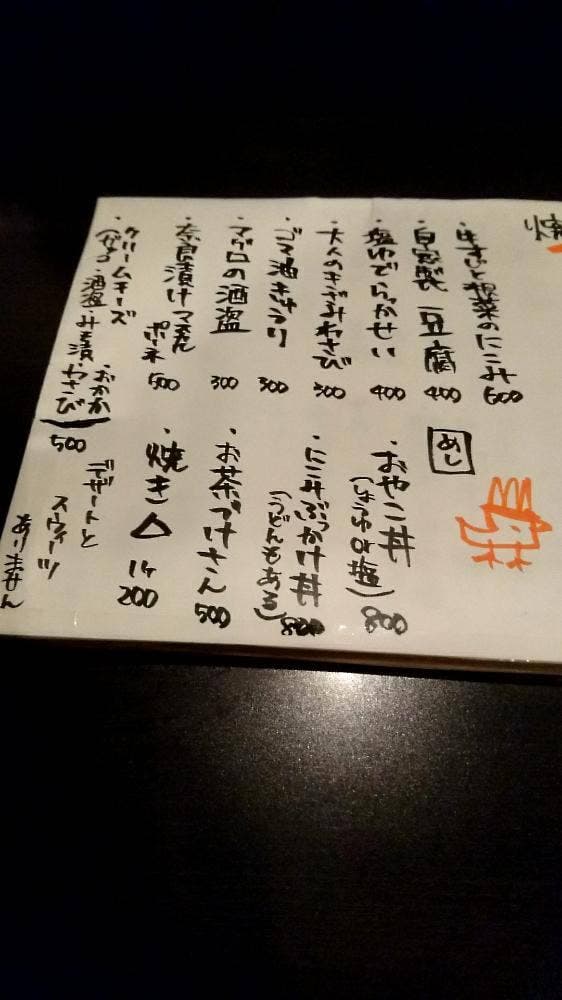 焼
・牛すじと惣菜のにこみ 600
・自家製 豆腐 400
・塩ゆでらっかせい 400
・大人のきざみわさび 300
・ゴマ油きゅうり 300
・マグロの酒盗 300
・奈良漬け マスカルポーネ 500
・クリームチーズ
酒盗・みそ漬
おかか
わさび) 500
めし
・おやこ丼
(しょうゆ or 塩) 800
・にこみぶっかけ丼
(うどんもある) 800
・お茶づけさん 500
・焼き△ 1ケ 200
デザートと
スウィーツ
ありません